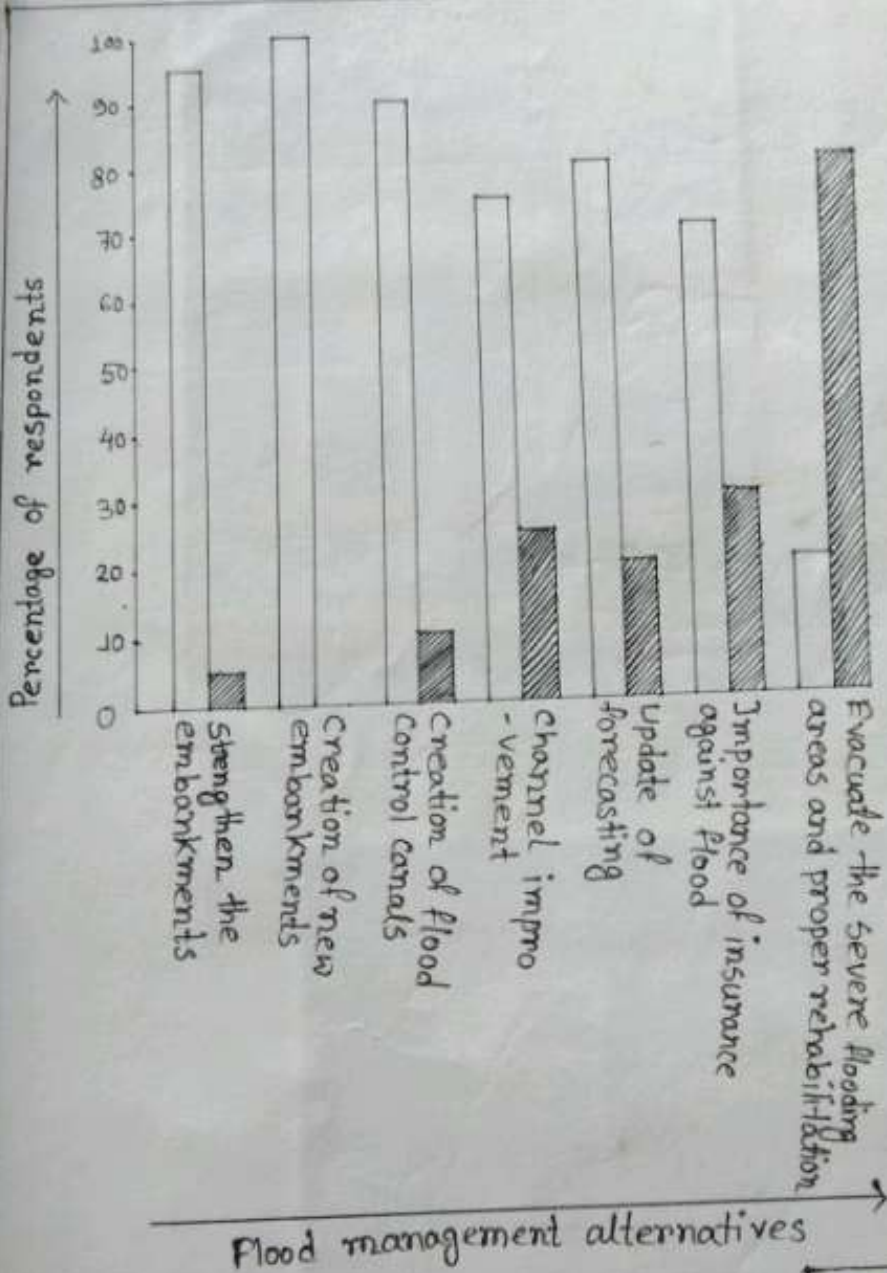 Percentage of respondents
100
90
80
70
60
50
40
30
20
10
0
Strengthen the
embankments
Creation of new
embankments
Creation of flood
Control canals
Channel impro
-vement
Update of
forecasting
Importance of insurance
against flood
Evacuate the severe flooding
areas and proper rehabilitation
Flood management alternatives